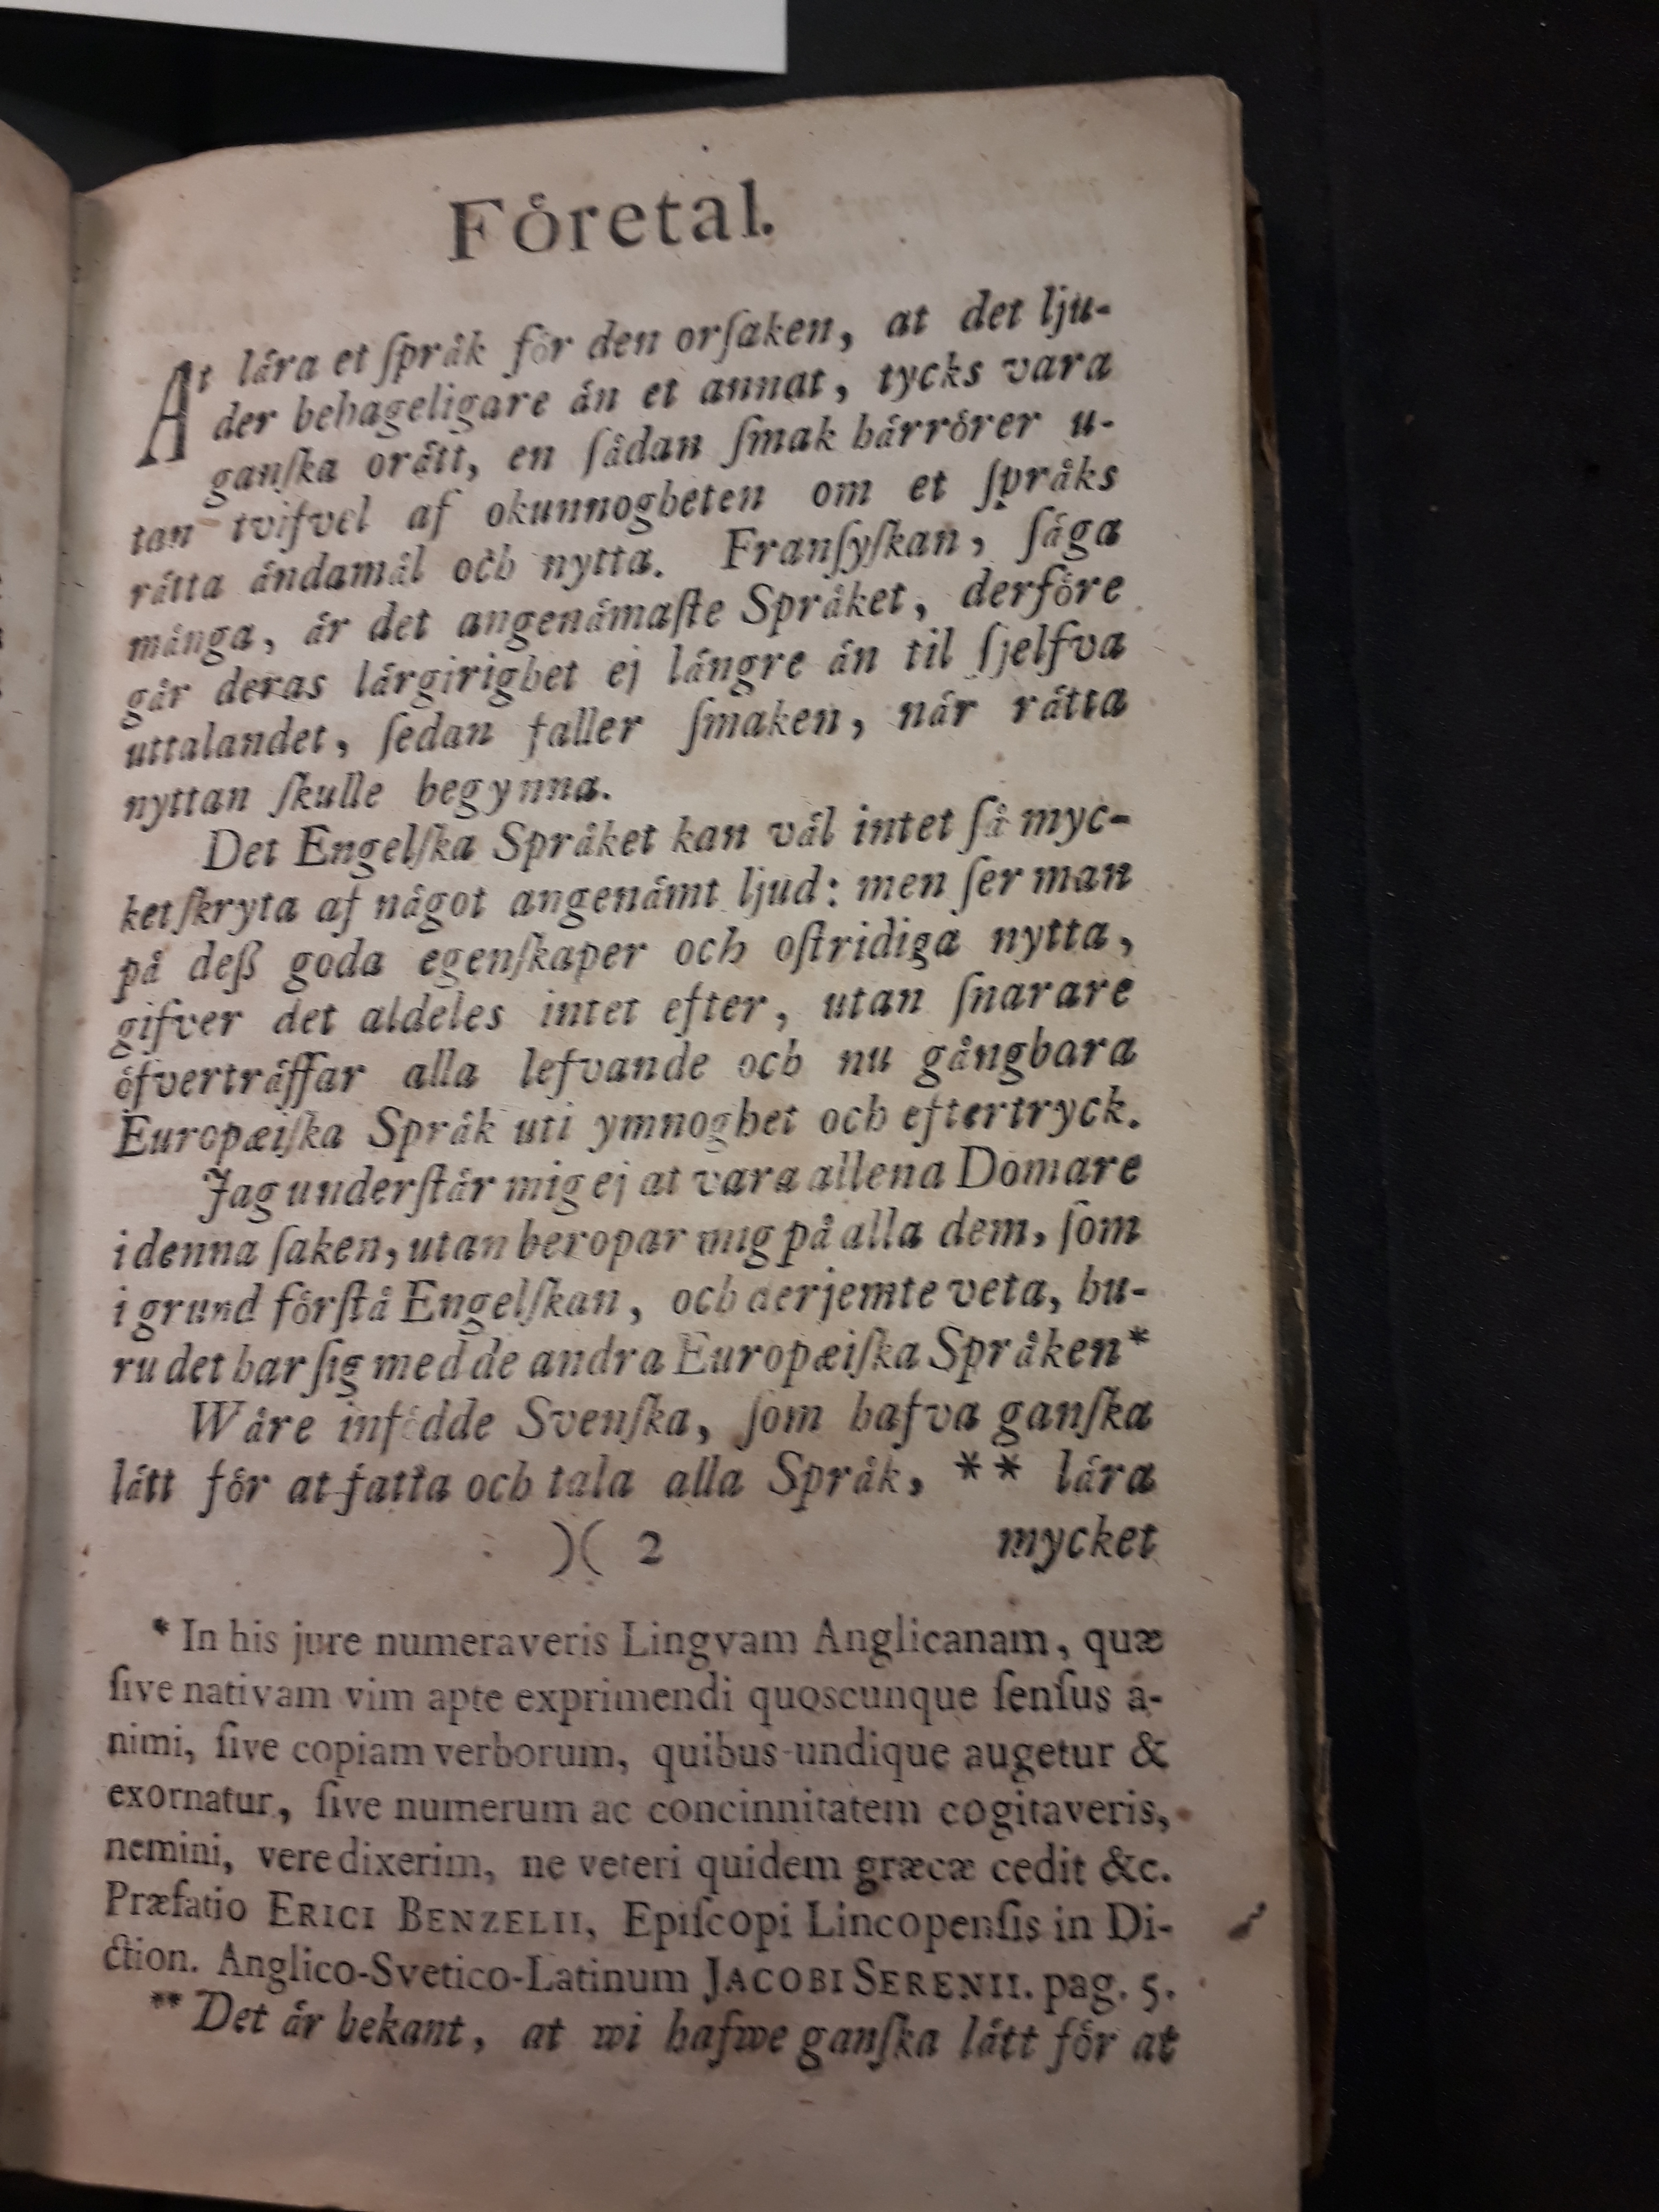 Företal.
At lära et ſpråk för den orſaken, at det lju-
der behageligare än et annat, tycks vara
ganſka orätt, en ſådan ſmak härrörer u-
tan tvifvel af okunnogheten om et ſpråks
rätta ändamål och nytta. Franſyſkan, ſäga
många, är det angenämaſte Språket, derföre
går deras lärgirighet ej längre än til ſjelfva
uttalandet, ſedan faller ſmaken, när rätta
nyttan ſkulle begynna.
Det Engelſka Språket kan väl intet ſå myc-
ket ſkryta af något angenämt ljud: men ſer man
på deſß goda egenſkaper och oſtridiga nytta,
gifver det aldeles intet efter, utan ſnarare
öfverträffar alla lefvande och nu gångbara
Europæiſka Språk uti ymnoghet och eftertryck.
Jag underſtår mig ej at vara allena Domare
i denna ſaken, utan beropar mig på alla dem, ſom
i grund förſtå Engelſkan, och derjemte veta, hu-
ru det har ſig med de andra Europæiſka Språken*
Wåre infödde Svenſka, ſom hafva ganſka
lätt för at fatta och tala alla Språk, ** lära
)( 2 mycket
* In his jure numeraveris Lingvam Anglicanam, quæ
ſive nativam vim apte exprimendi quoscunque ſenſus a-
nimi, ſive copiam verborum, quibus undique augetur &
exornatur, ſive numerum ac concinnitatem cogitaveris,
nemini, vere dixerim, ne veteri quidem græcæ cedit &c.
Præfatio ERICI BENZELII, Epiſcopi Lincopenſis in Di-
ction. Anglico-Svetico-Latinum JACOBI SERENII. pag. 5.
** Det är bekant, at wi hafwe ganſka lätt för at